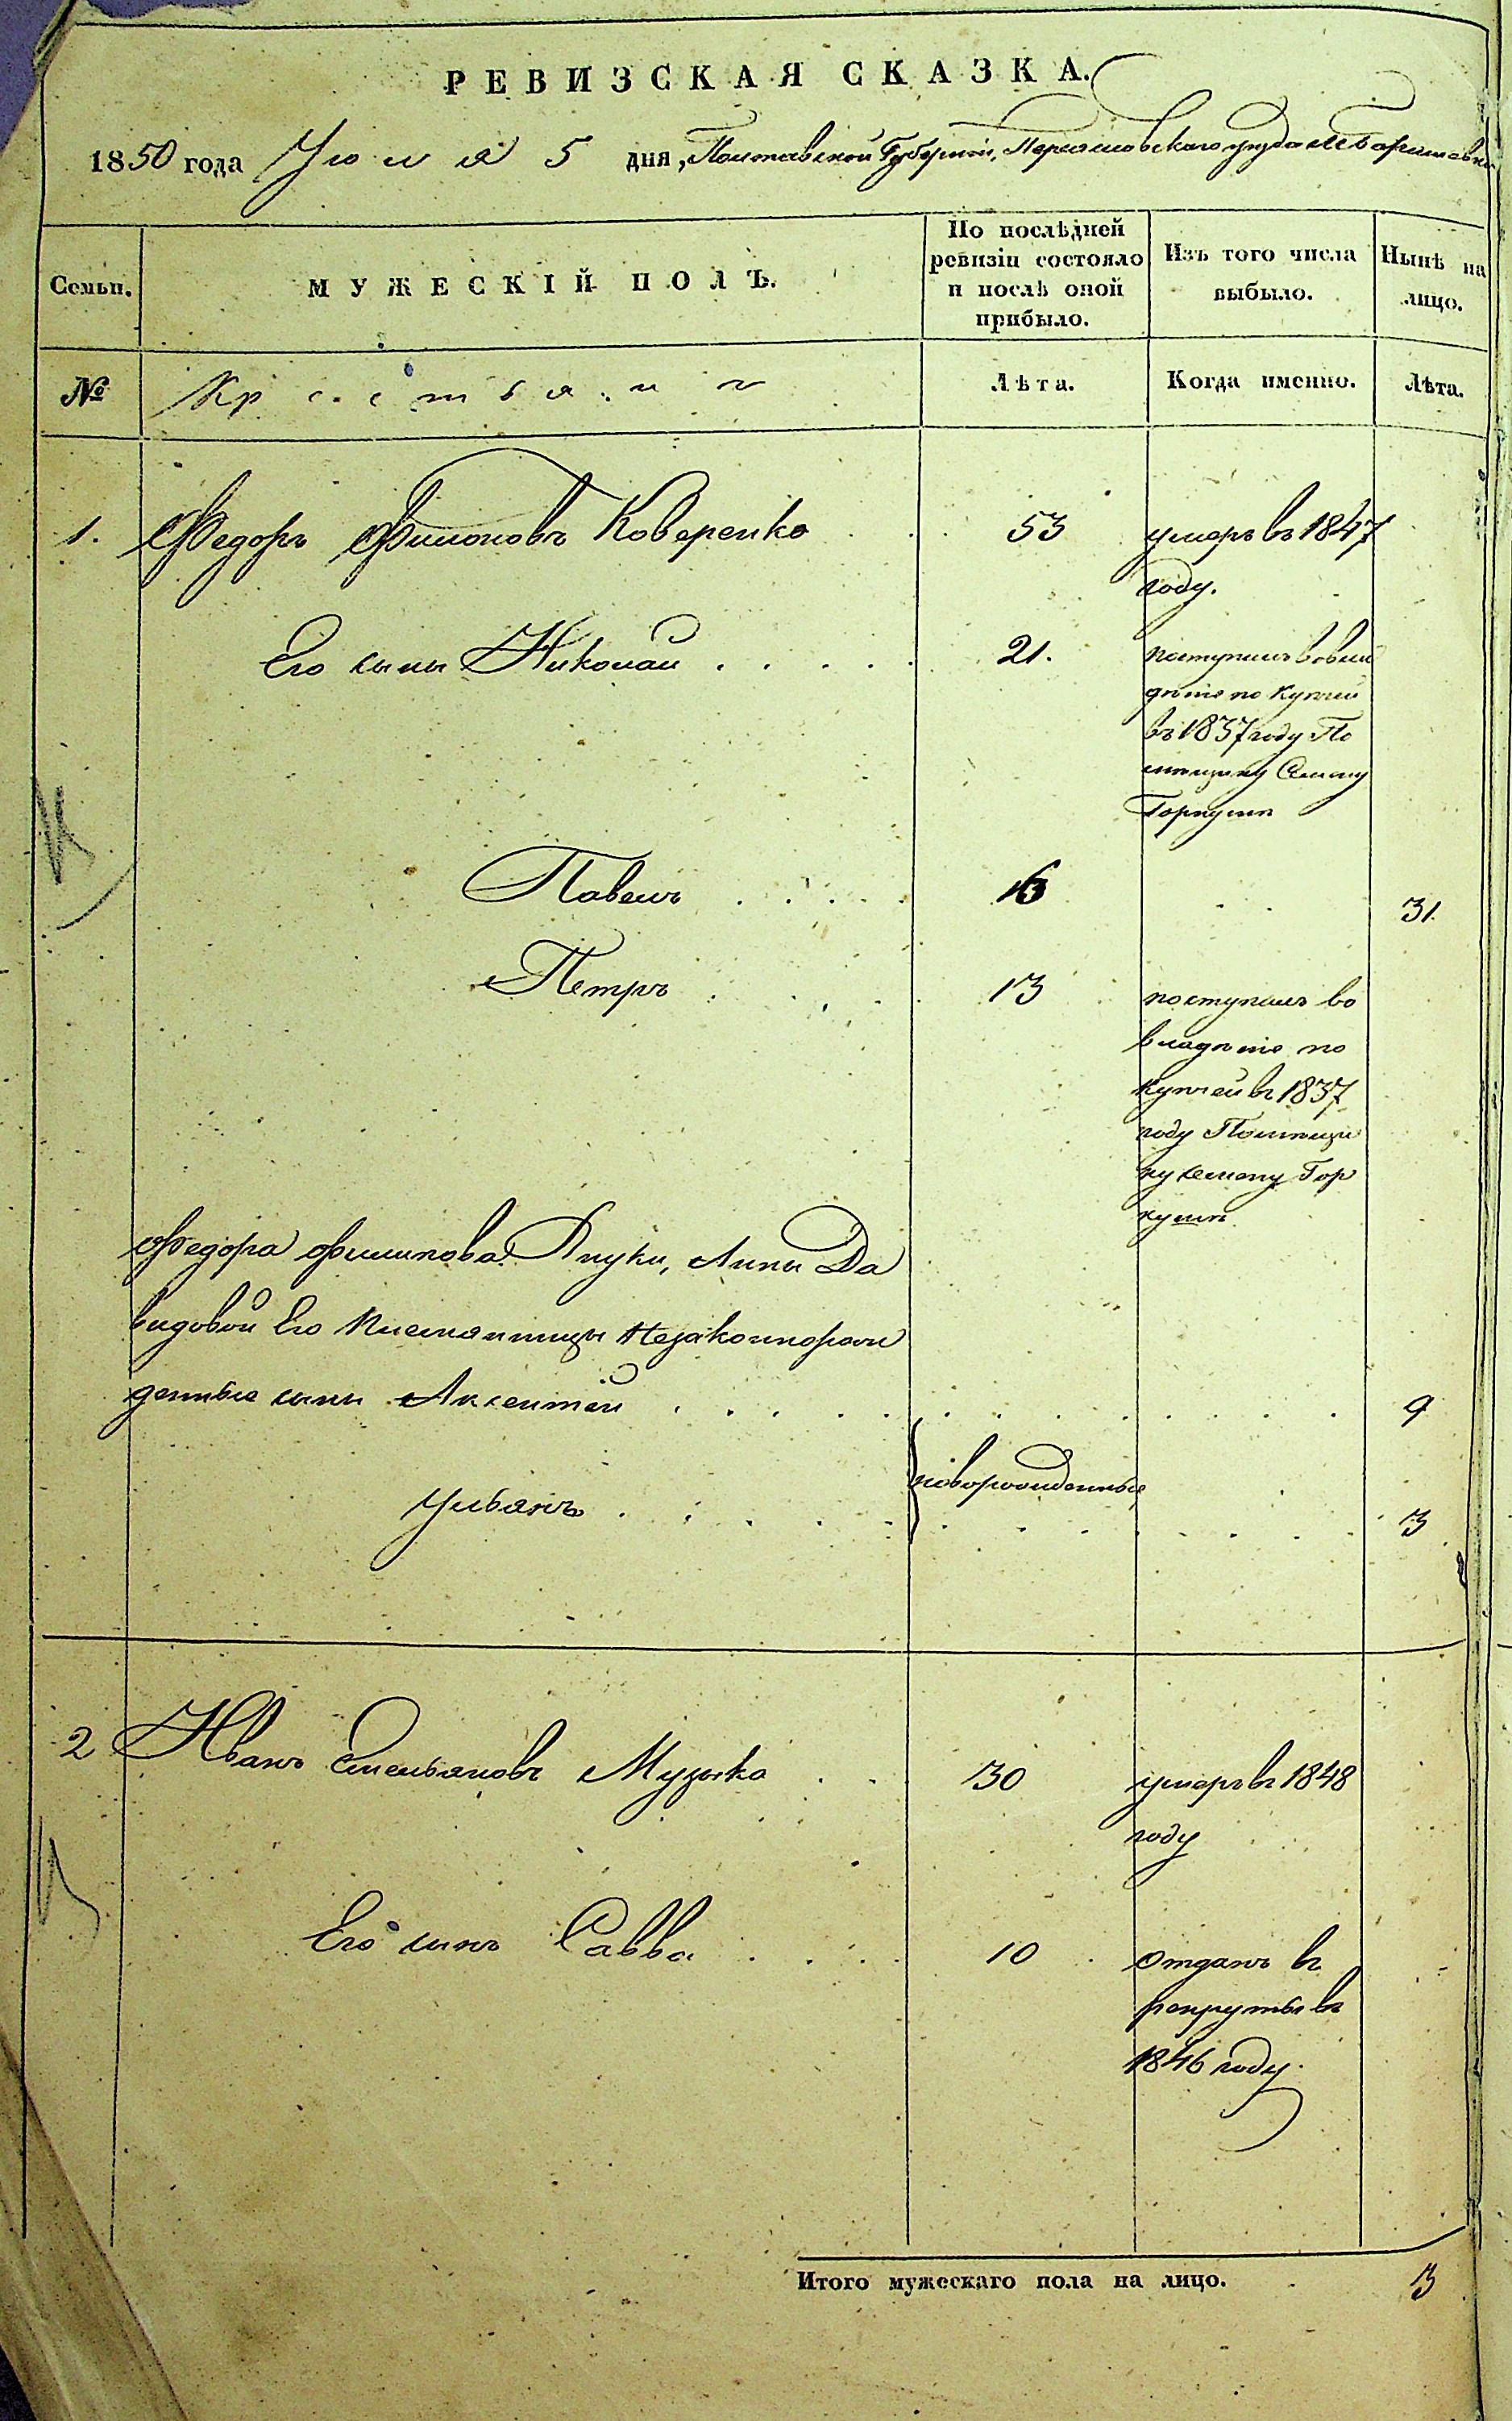 РЕВИЗСКАЯ СКАЗКА.
1850 года Июля 5 дня, Полтавской Губернии, Переяславского уезда м. Баришевки
Семьи.
МУЖЕСКІЙ ПОЛЪ.
По послѣдней
ревизіи состояло
и послѣ оной
прибыло.
Изъ того числа
выбыло.
Нынѣ на
лицо.
№
Крестьяне
Лѣта.
Когда именно.
Лѣта.
1. Федоръ Филоновъ Коверенко 53 умеръ въ 1847
году.
Его сыны Николай 21. поступилъ во вла
дѣніе по купчей
въ 1837 году По
мѣщику Семену
Горкуши
Павелъ 16 31.
Петръ 13 поступилъ во
владѣніе по
купчей въ 1837
году Помѣщи
ку Семену Гор
куши
Федора Филипова Внуки, Анны Да
видовой Его Племянницы Незаконнорож
денные сыны Аксентей 9
новорожденные
Ульянъ 3
2 Иванъ Емельяновъ Музыка 30 умеръ въ 1848
году
Его сынъ Савва 10 отданъ въ
рекруты въ
1846 году.
Итого мужескаго пола на лицо. 3